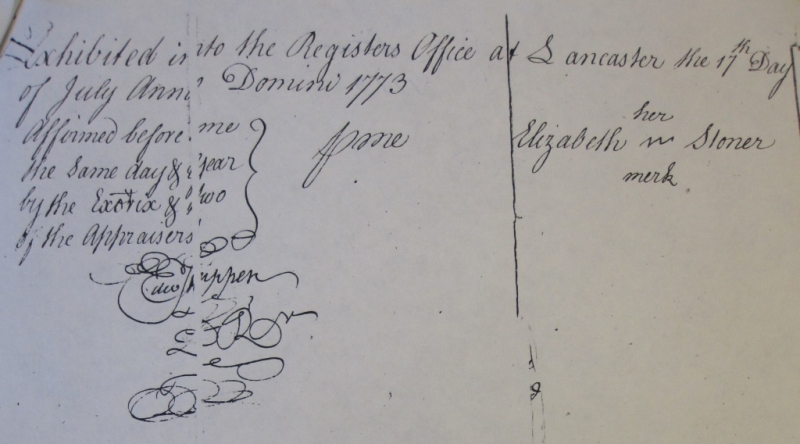 Exhibited into the Registers Office at Lancaster the 17th Day
of July Anno Domini 1773
Affirmed before me
the same day & Year
by the Exotix & two
of the Appraisers
her
Elizabeth m Stoner
merk
Edw Shippen